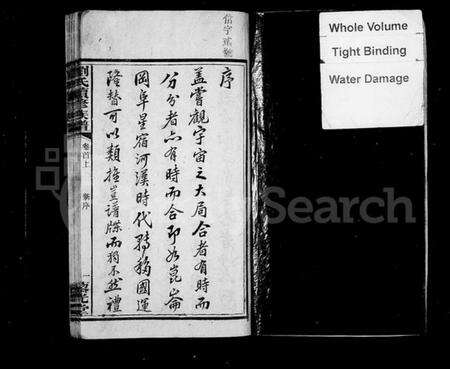 序
蓋嘗觀宇宙之大局合者有時而
分分者亦有時而合即如崑崙
岡阜星宿河漢時代轉移國運
隆替可以類推豈譜牒而獨不然禮
劉氏續修族譜
卷首上
序
一
Whole Volume
Tight Binding
Water Damage
Search